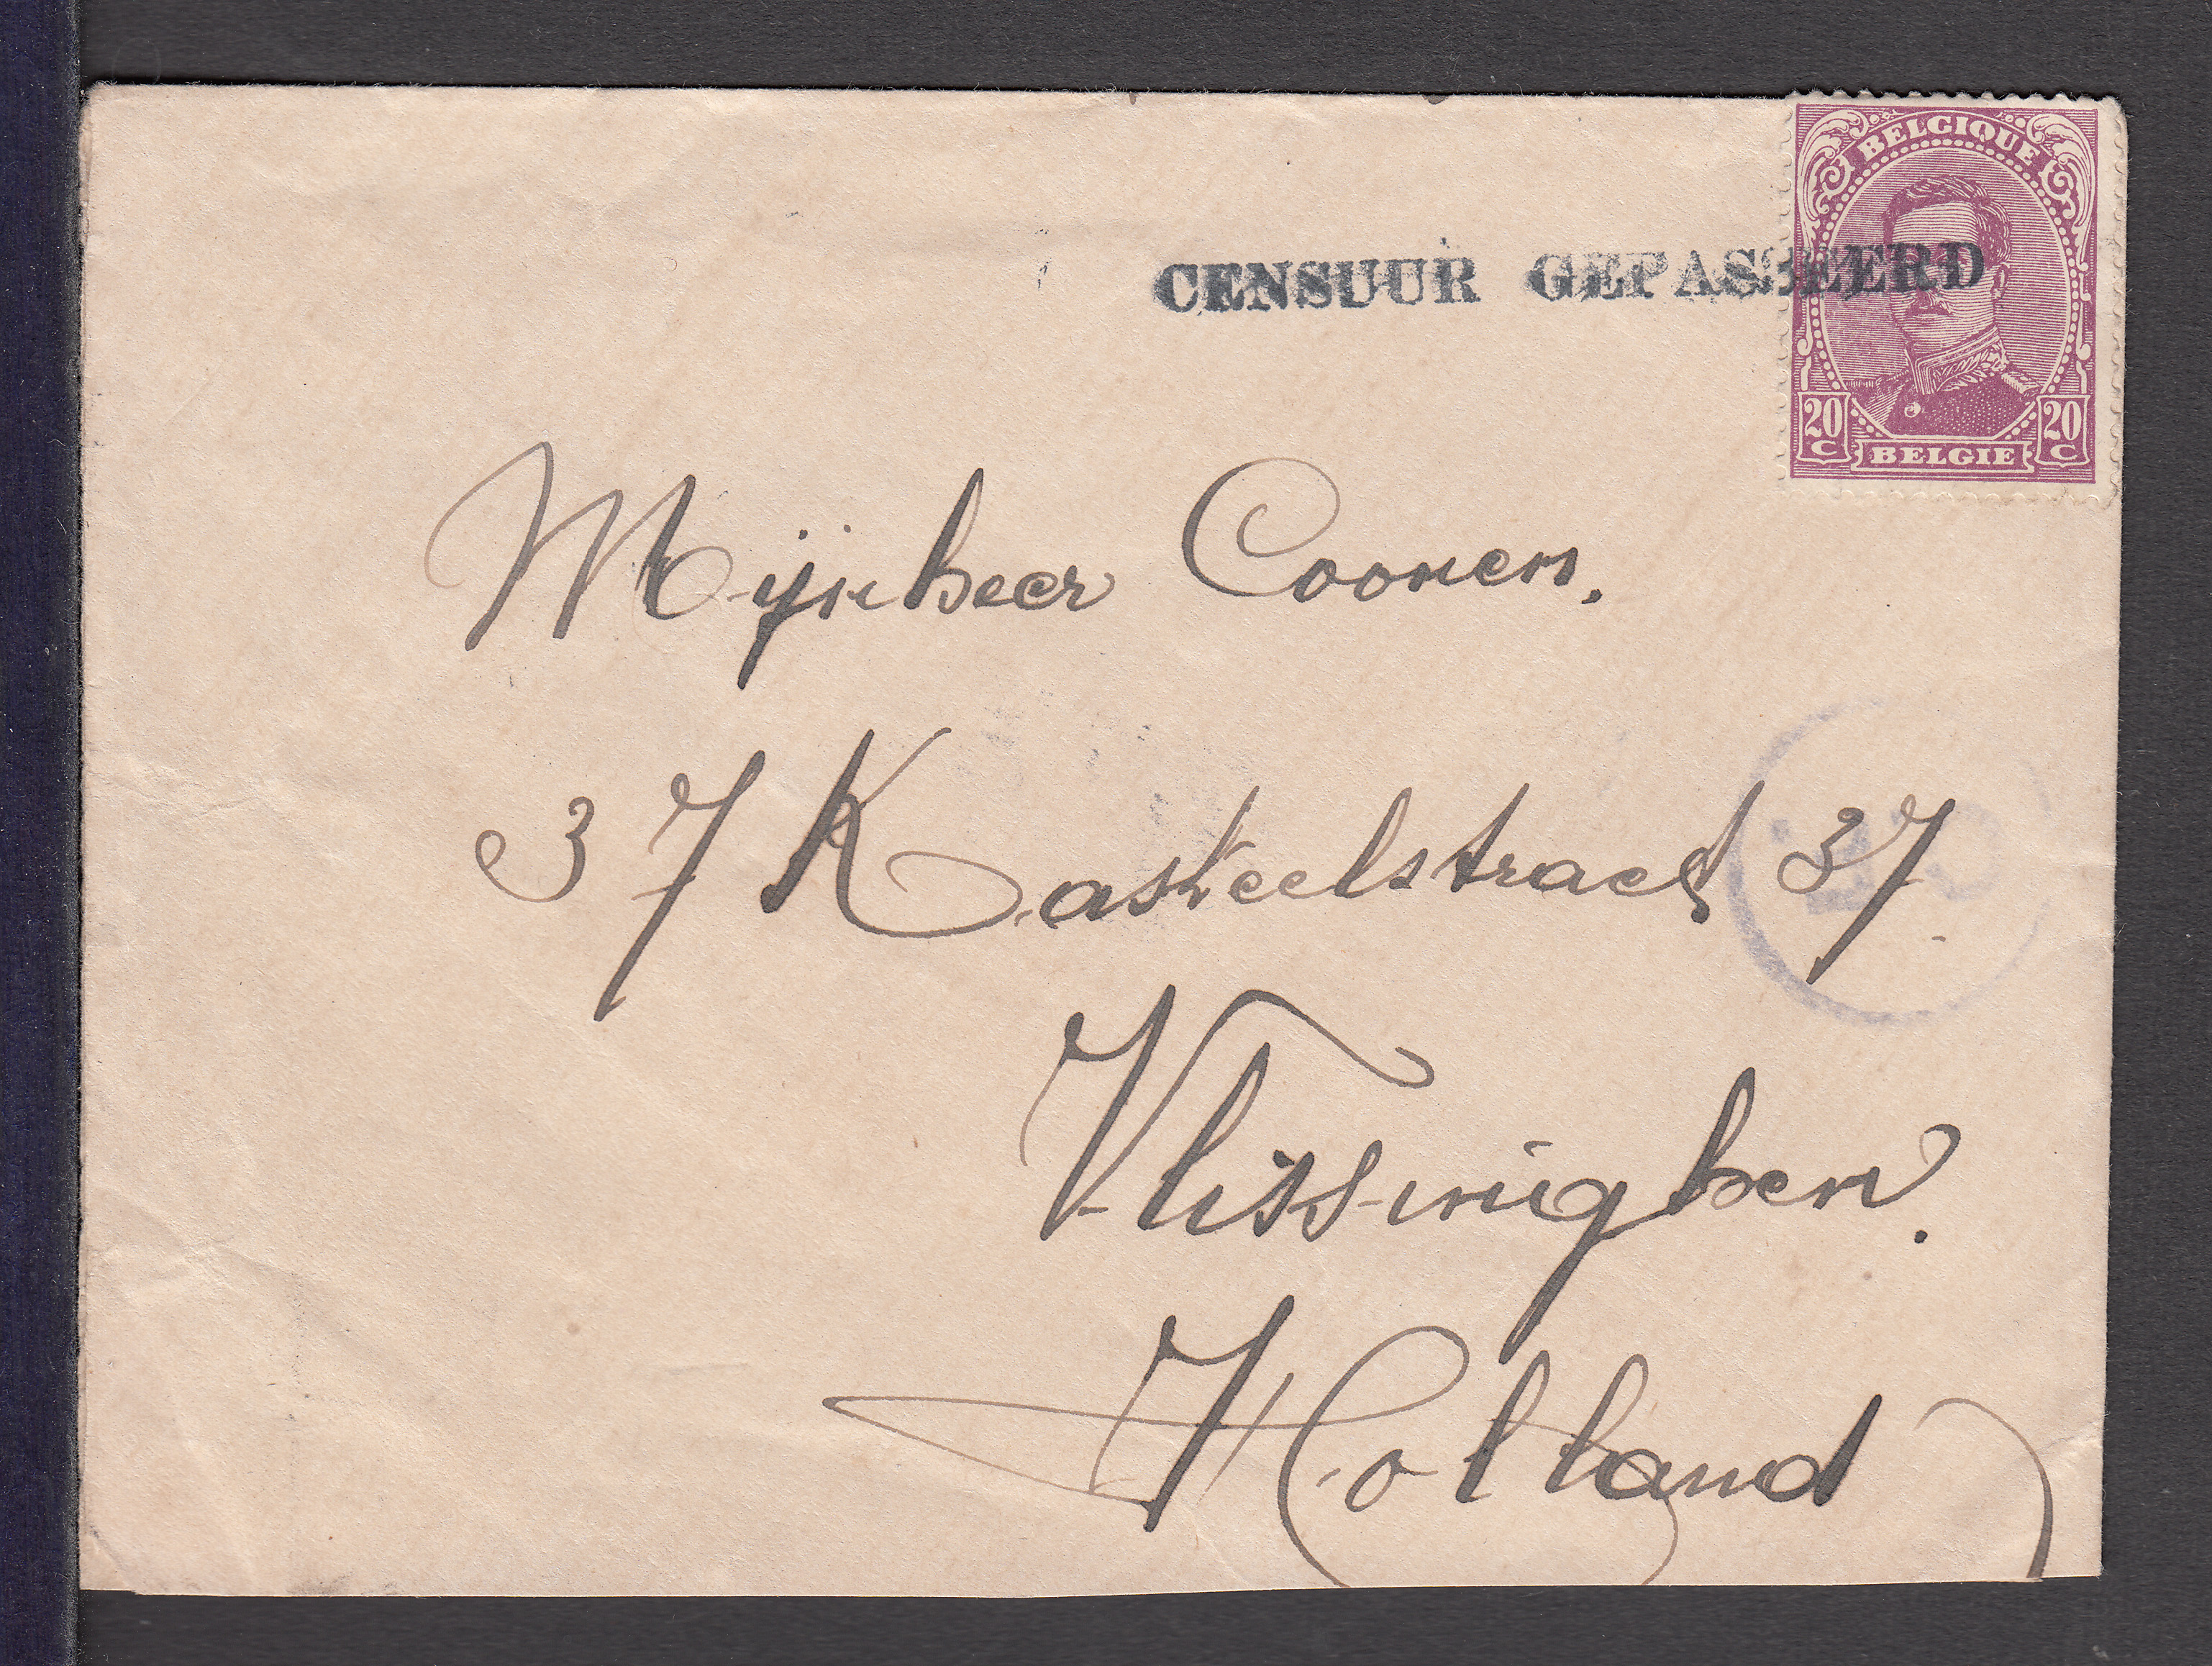 BELGIQUE
CENSUUR GEPASSEERD
20 C 20 C
BELGIE
Mijnheer Coonen.
37 Kasteelstraet 37
Vlissinghen.
Holland